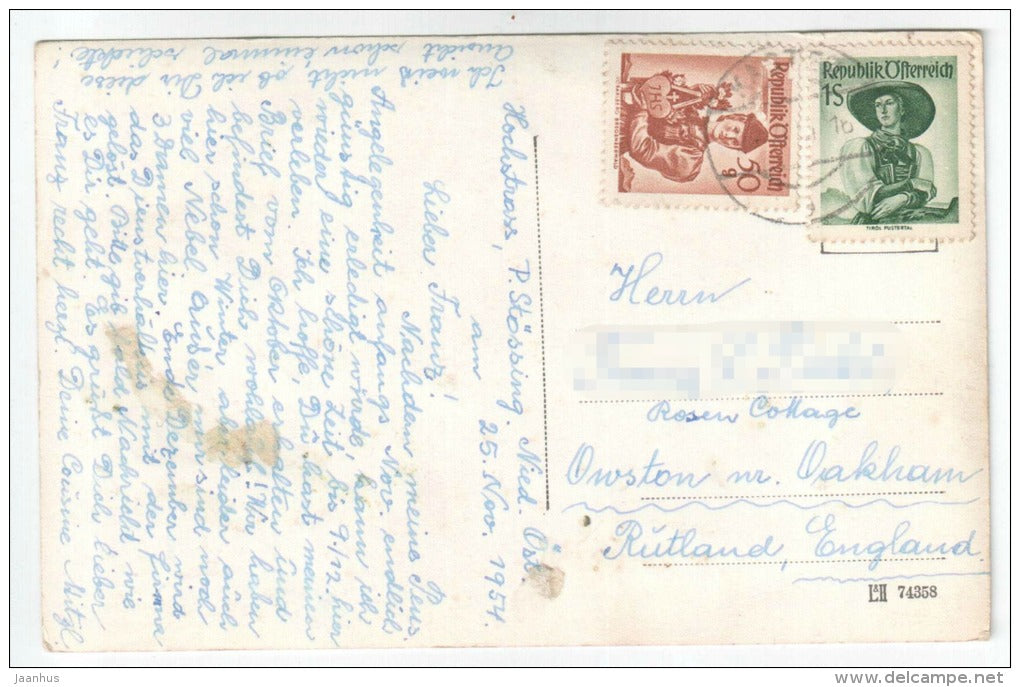 Hochstrass, P. Stössing. Nied. Öst.
am 25. Nov. 1954.
Lieber Franz!
Nachdem meine Pens.
Angelegenheit anfangs Nov. endlich
günstig erledigt würde, kann ich
wieder eine schöne Zeit, bis 9./12. hier
verleben. Ich hoffe, Du hast meinen
Brief vom Oktober erhalten und
befindest Dich wohl! Wir haben
hier schon Winter, aber leider auch
viel Nebel. Außer sind noch
3 Damen hier. Ende Dezember wird
das Dienstverhältnis mit der Firma
gelöst. Bitte gib bald Nachricht wie
es Dir geht. Es grüßt Dich lieber
Franz recht herzl. Deine Cousine Mitzl.
Ich weiß nicht, ob ich Dir diese
Ansicht schon einmal schickte!
Republik Österreich
50 g
Republik Österreich
1S
TIROL PUSTERTAL
Herrn
Rosen Cottage
Owston nr. Oakham
Rutland, England
L&H 74358
jaanhus
http://www.delcampe.net